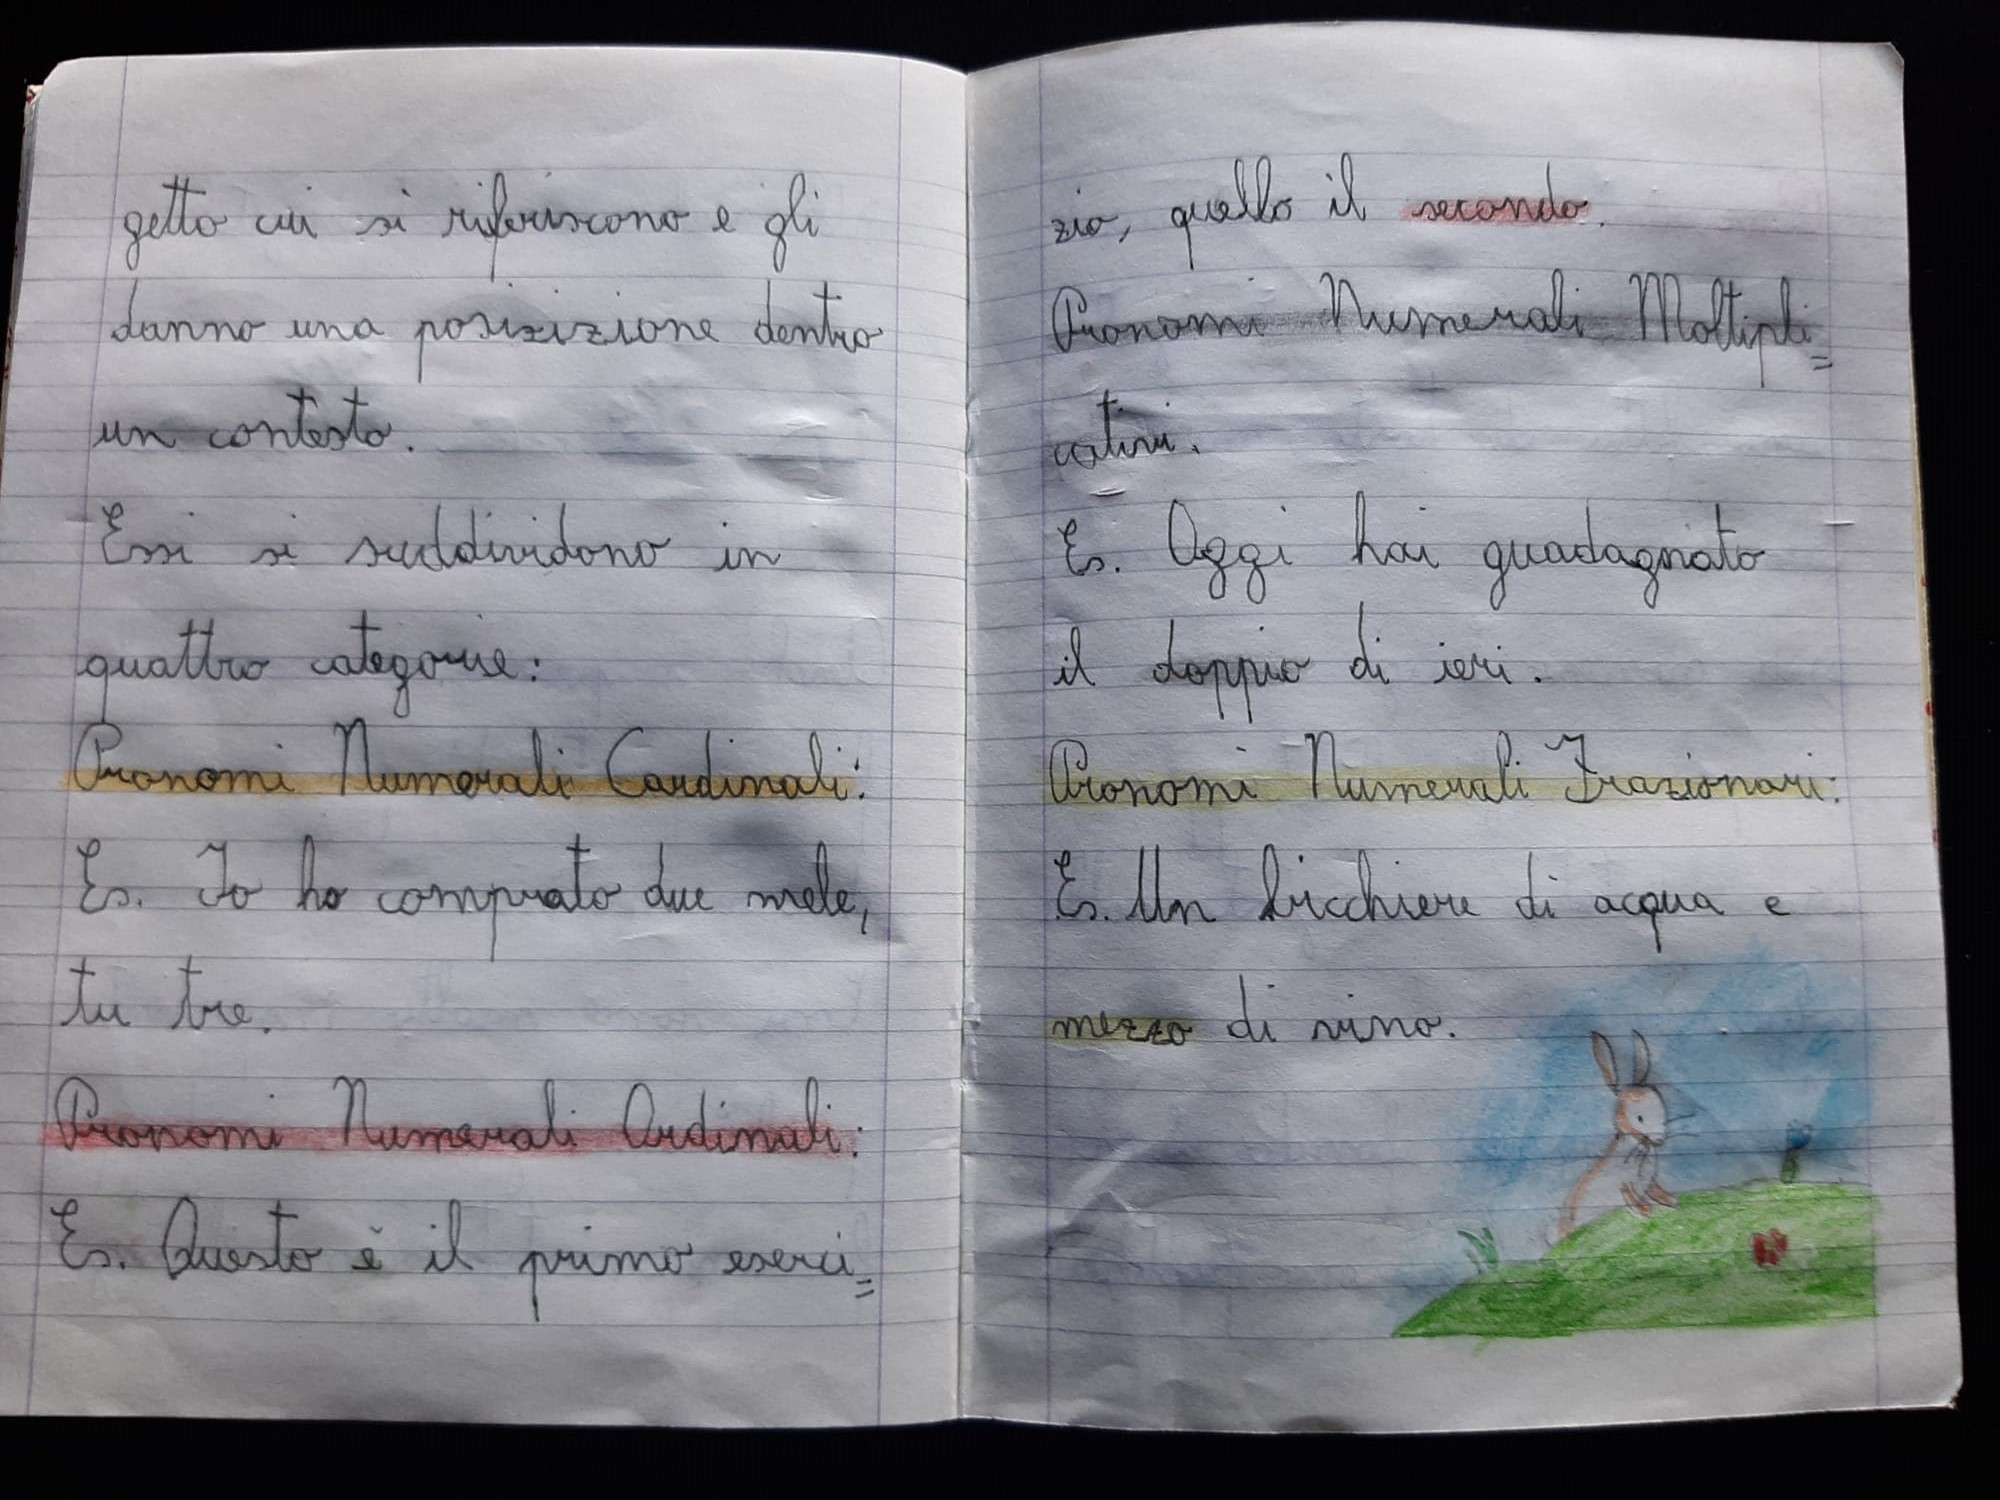 getto cui si riferiscono e gli
danno una posizizione dentro
un contesto.
Essi si suddividono in
quattro categorie:
Pronomi Numerali Cardinali:
Es. Io ho comprato due mele,
tu tre.
Pronomi Numerali Ordinali:
Es. Questo è il primo eserci=
zio, quello il secondo.
Pronomi Numerali Moltipli=
cativi.
Es. Oggi hai guadagnato
il doppio di ieri.
Pronomi Numerali Frazionari:
Es. Un bicchiere di acqua e
mezzo di vino.